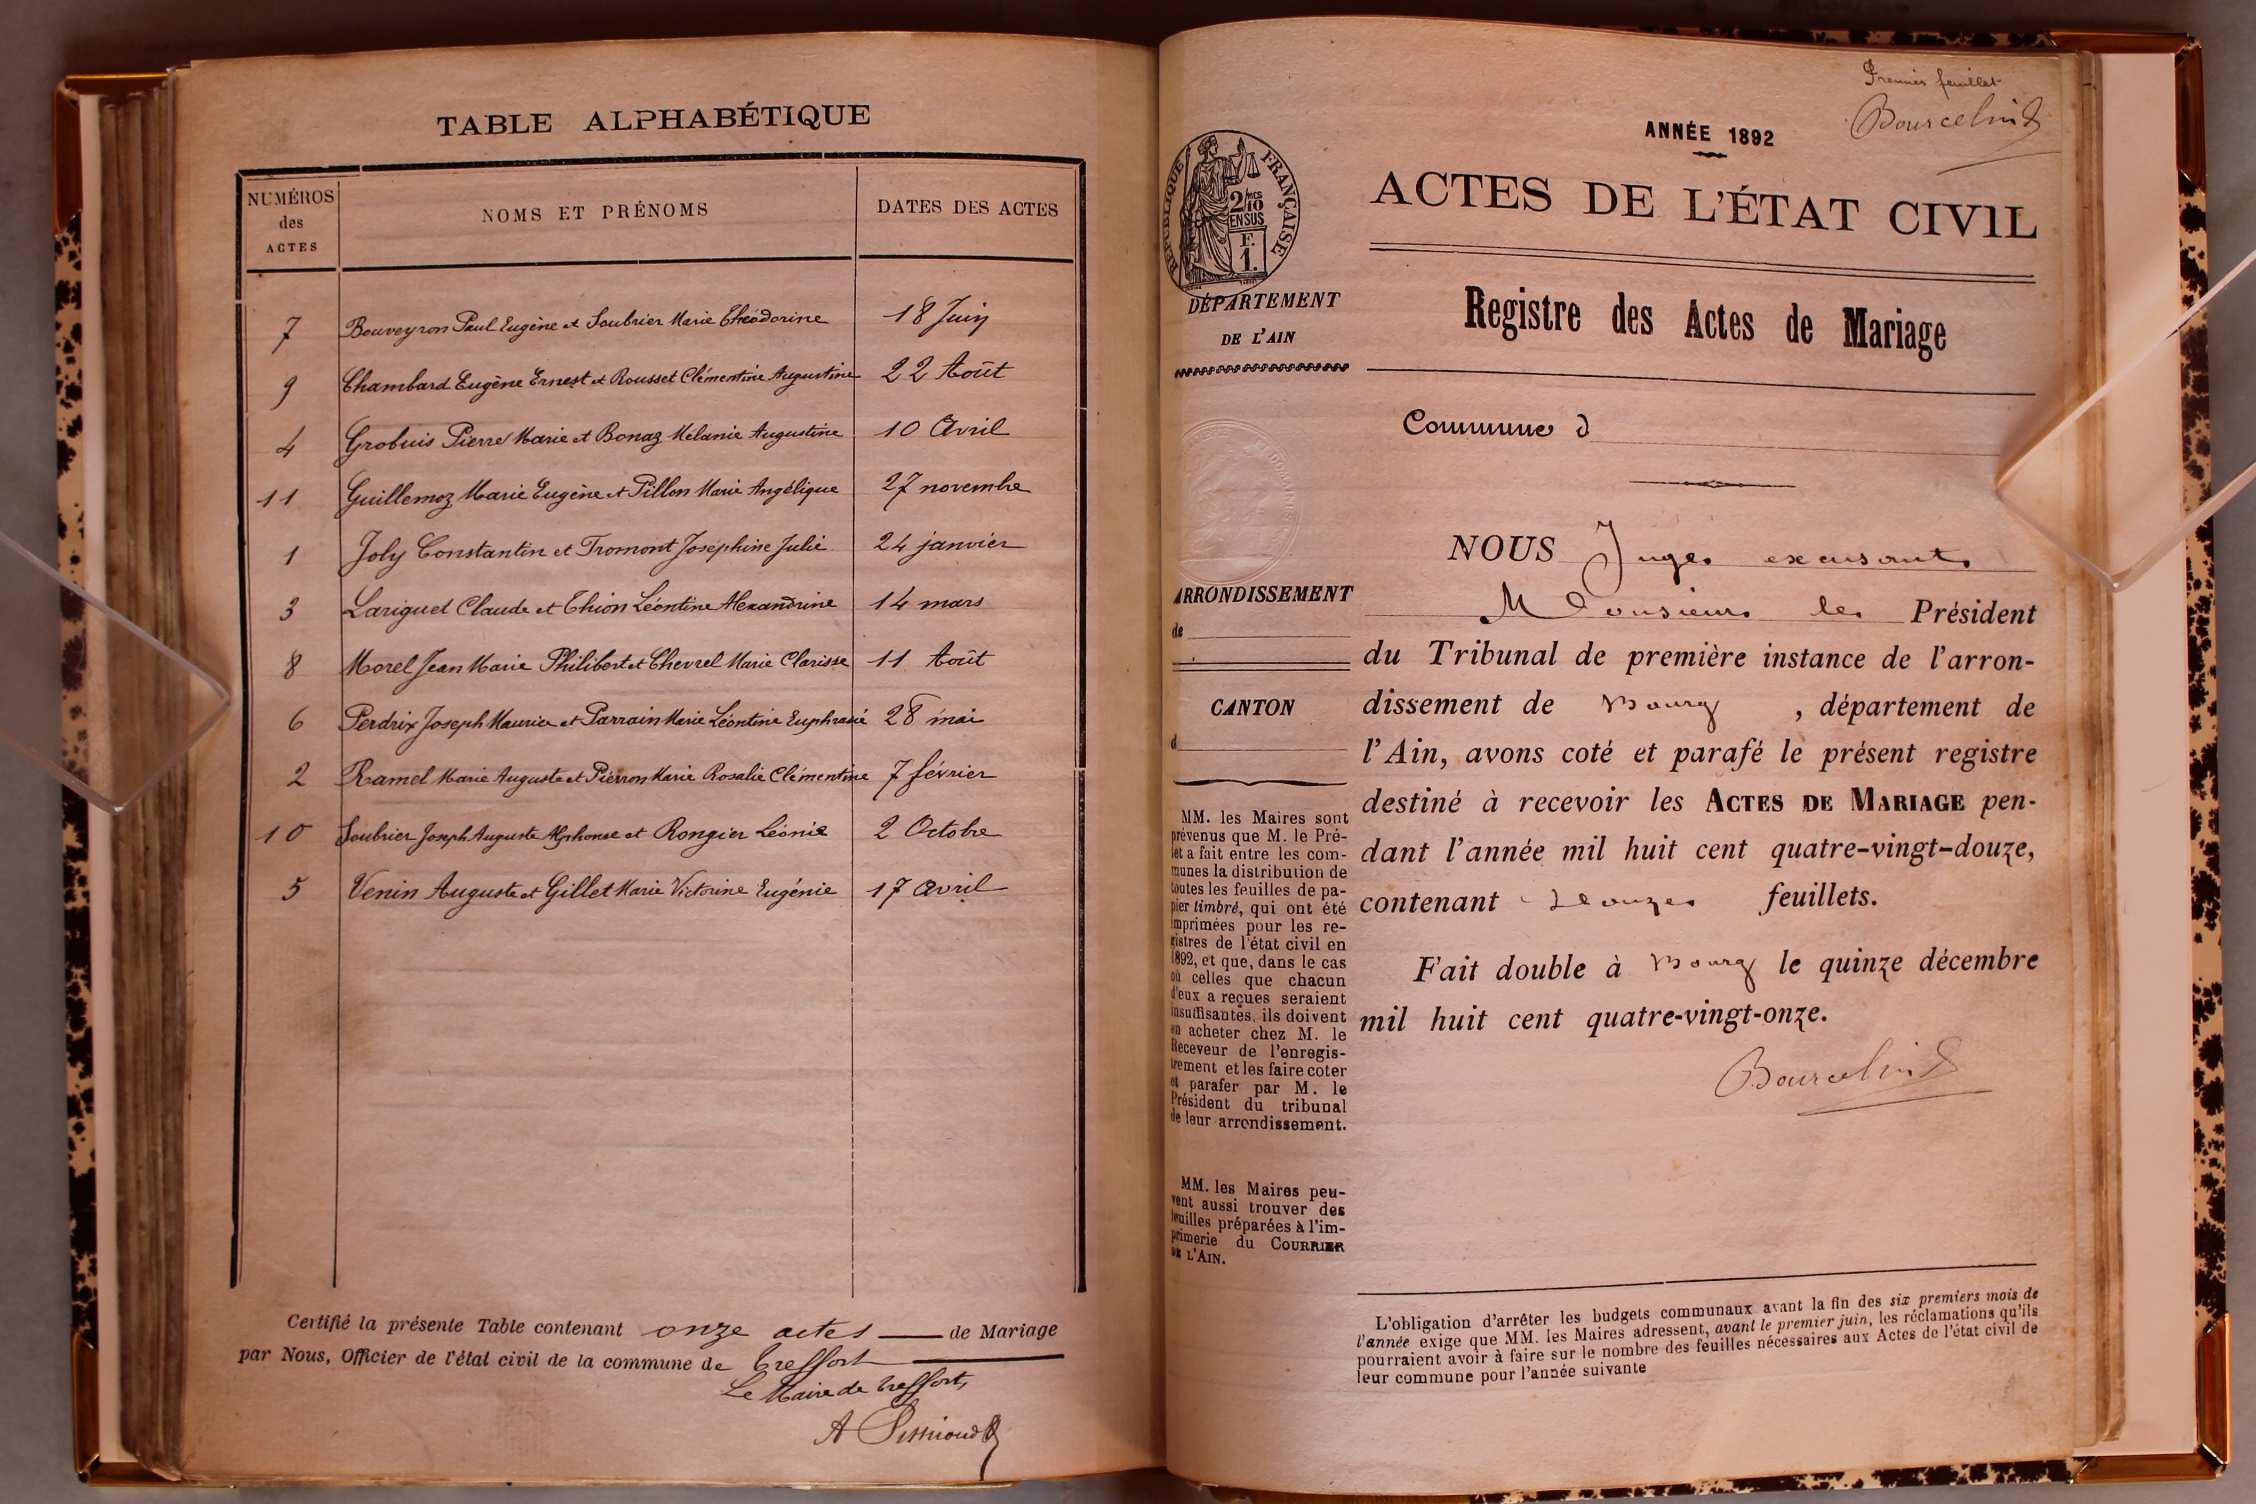 TABLE ALPHABÉTIQUE
NUMÉROS des ACTES
NOMS ET PRÉNOMS
DATES DES ACTES
7 Bouveyron Paul Eugène et Soubrier Marie Théodorine 18 Juin
9 Chambard Eugène Ernest et Rousset Clémentine Augustine 22 Août
4 Grobuis Pierre Marie et Bonaz Mélanie Augustine 10 Avril
11 Guillemoz Marie Eugène et Pillon Marie Angélique 27 novembre
1 Joly Constantin et Tromont Joséphine Julie 24 janvier
3 Lariguet Claude et Thion Léontine Alexandrine 14 mars
8 Morel Jean Marie Philibert et Chevrel Marie Clarisse 11 Août
6 Perdrix Joseph Maurice et Parrain Marie Léontine Euphrasie 28 mai
2 Ramel Marie Auguste et Pierron Marie Rosalie Clémentine 7 février
10 Soubrier Joseph Auguste Alphonse et Rongier Léonie 2 Octobre
5 Venin Auguste et Gillet Marie Victorine Eugénie 17 avril
Certifié la présente Table contenant onze actes de Mariage
par Nous, Officier de l'état civil de la commune de Treffort
Le Maire de Treffort,
Premier feuillet
Bourcelin
ANNÉE 1892
ACTES DE L'ÉTAT CIVIL
RÉPUBLIQUE FRANÇAISE
2/10
EN SUS
F.
1.
DÉPARTEMENT
DE L'AIN
Registre des Actes de Mariage
Commune d
ARRONDISSEMENT
de
CANTON
d
MM. les Maires sont
prévenus que M. le Pré-
fet a fait entre les com-
munes la distribution de
toutes les feuilles de pa-
pier timbré, qui ont été
imprimées pour les re-
gistres de l'état civil en
1892, et que, dans le cas
où celles que chacun
d'eux a reçues seraient
insuffisantes, ils doivent
en acheter chez M. le
Receveur de l'enregis-
trement et les faire coter
et parafer par M. le
Président du tribunal
de leur arrondissement.
MM. les Maires peu-
vent aussi trouver des
feuilles préparées à l'im-
primerie du COURRIER
DE L'AIN.
NOUS Juge excusant
Monsieur le Président
du Tribunal de première instance de l'arron-
dissement de Bourg, département de
l'Ain, avons coté et parafé le présent registre
destiné à recevoir les ACTES DE MARIAGE pen-
dant l'année mil huit cent quatre-vingt-douze,
contenant douze feuillets.
Fait double à Bourg le quinze décembre
mil huit cent quatre-vingt-onze.
Bourcelin
L'obligation d'arrêter les budgets communaux avant la fin des six premiers mois de
l'année exige que MM. les Maires adressent, avant le premier juin, les réclamations qu'ils
pourraient avoir à faire sur le nombre des feuilles nécessaires aux Actes de l'état civil de
leur commune pour l'année suivante